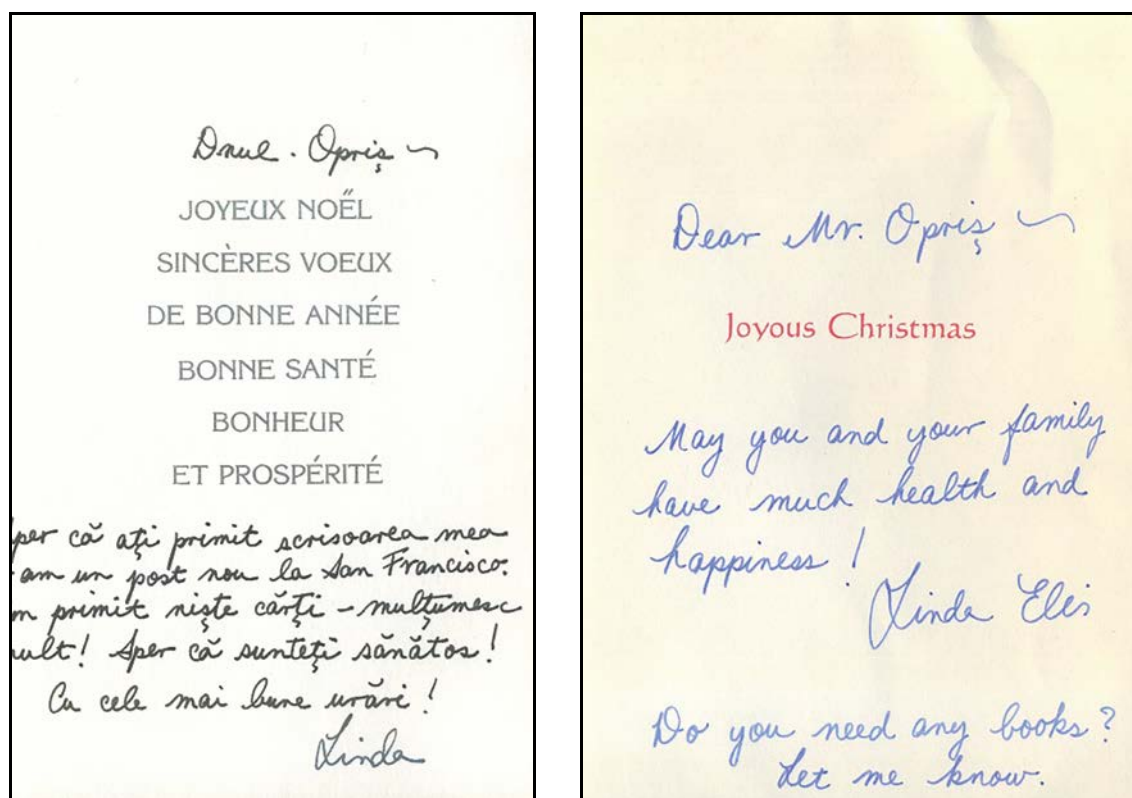 Dnul. Opriş ~
JOYEUX NOËL
SINCÈRES VOEUX
DE BONNE ANNÉE
BONNE SANTÉ
BONHEUR
ET PROSPÉRITÉ
per că aţi primit scrisoarea mea
am un post nou la San Francisco.
m primit nişte cărţi – mulţumesc
ult! Sper că sunteţi sănătos!
Cu cele mai bune urări!
Linda
Dear Mr. Opriş ~
Joyous Christmas
May you and your family
have much health and
happiness!
Linda Elis
Do you need any books?
Let me know.